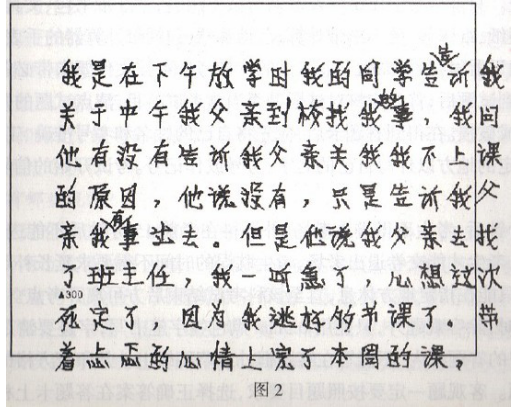 我是在下午放学时我的同学告诉我
告
关于中午我父亲到校找我事，我问
他有没有告诉我父亲去找我不上课
的原因，他说没有，只是告诉我父
有
亲我事出去。但是他说我父亲去找
了班主任，我一听急了，心想这次
300
死定了，因为我逃好的节课了，带
着忐忑的心情上完了本周的课，
图 2